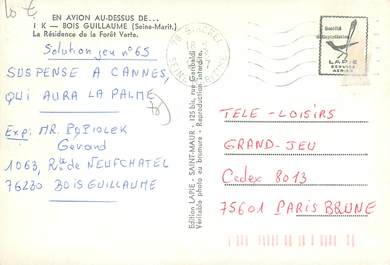 10 €
EN AVION AU-DESSUS DE...
1 K — BOIS GUILLAUME (Seine-Marit.)
La Résidence de la Forêt Verte.
Solution jeu n° 65
SUSPENSE A CANNES,
QUI AURA LA PALME
Exp: MR. POPIOLEK
Gérard
1063, Rte de NEUFCHATEL
76230 BOIS GUILLAUME
Edition LAPIE - SAINT-MAUR - 125 bis, rue Garibaldi
Véritable photo au bromure - Reproduction interdite.
Société
d'Exploitation
LAPIE
SERVICE
AERIEN
TELE-LOISIRS
GRAND-JEU
Cedex 8013
75601 PARIS BRUNE